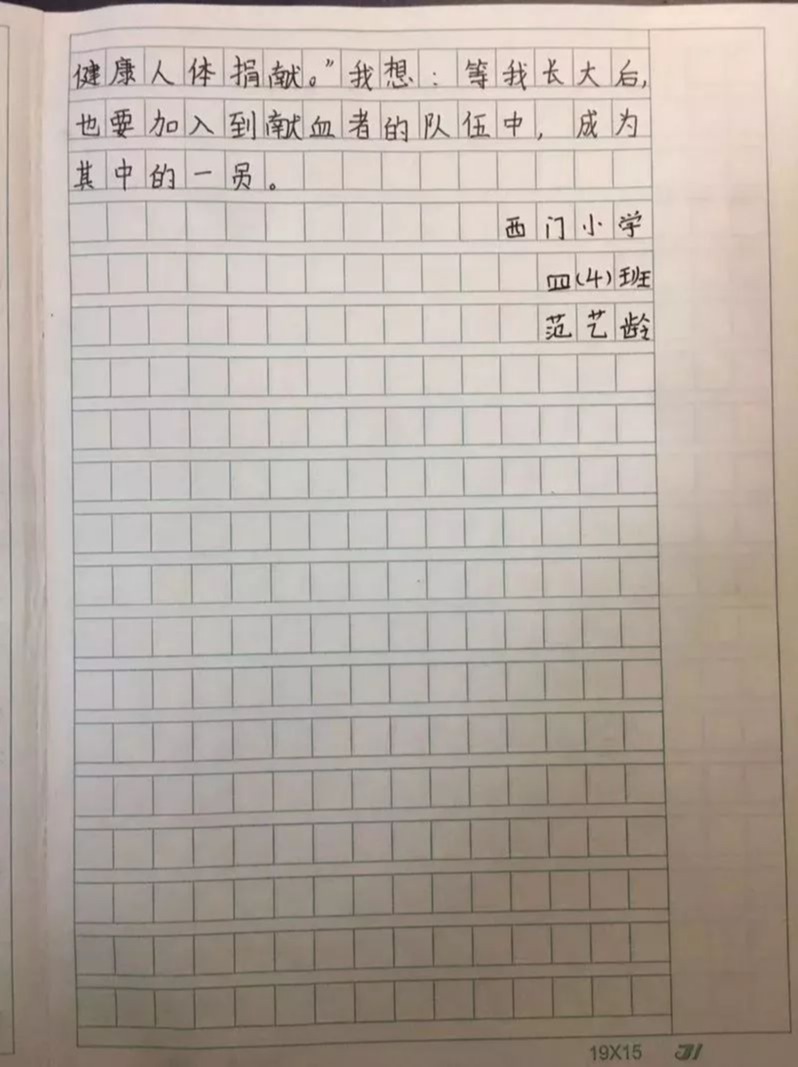 健康人体捐献。”我想：等我长大后，
也要加入到献血者的队伍中，成为
其中的一员。
西门小学
四(4)班
范艺龄
19X15